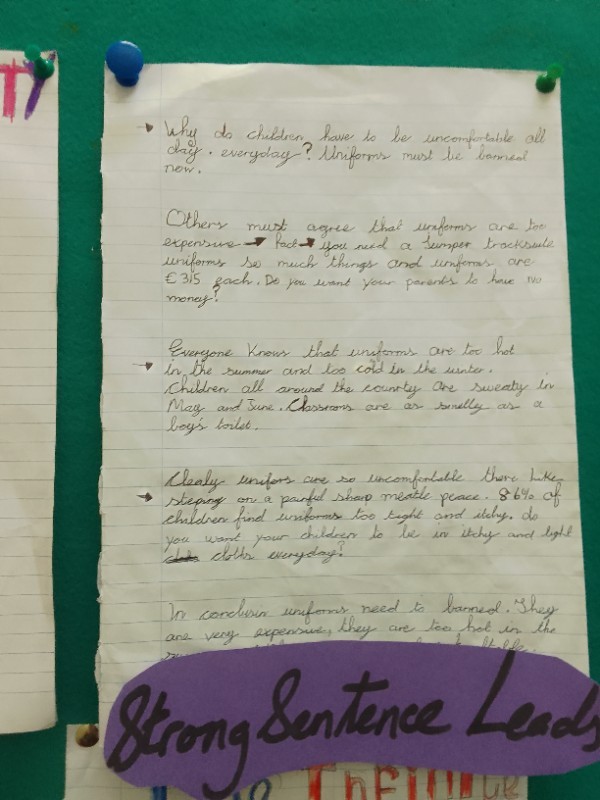 Why do children have to be uncomfortable all
day. everyday? Uniforms must be banned
now.
Others must agree that uniforms are too
expensive → fact → you need a Jumper tracksuite
uniforms so much things and uniforms are
€315 each. Do you want your parents to have no
money?
Everyone Knows that uniforms are too hot
in the summer and too cold in the winter.
Children all around the country are sweaty in
May and June. Classrooms are as smelly as a
boy's toilet.
Clealy unifors are so uncomfortable there like
steping on a painful sharp meatle peace. 86% of
children find uniforms too tight and itchy. do
you want your children to be in itchy and tight
cloths everyday?
In conclusin uniforms need to banned. They
are very expensive, they are too hot in the
Strong Sentence Leads